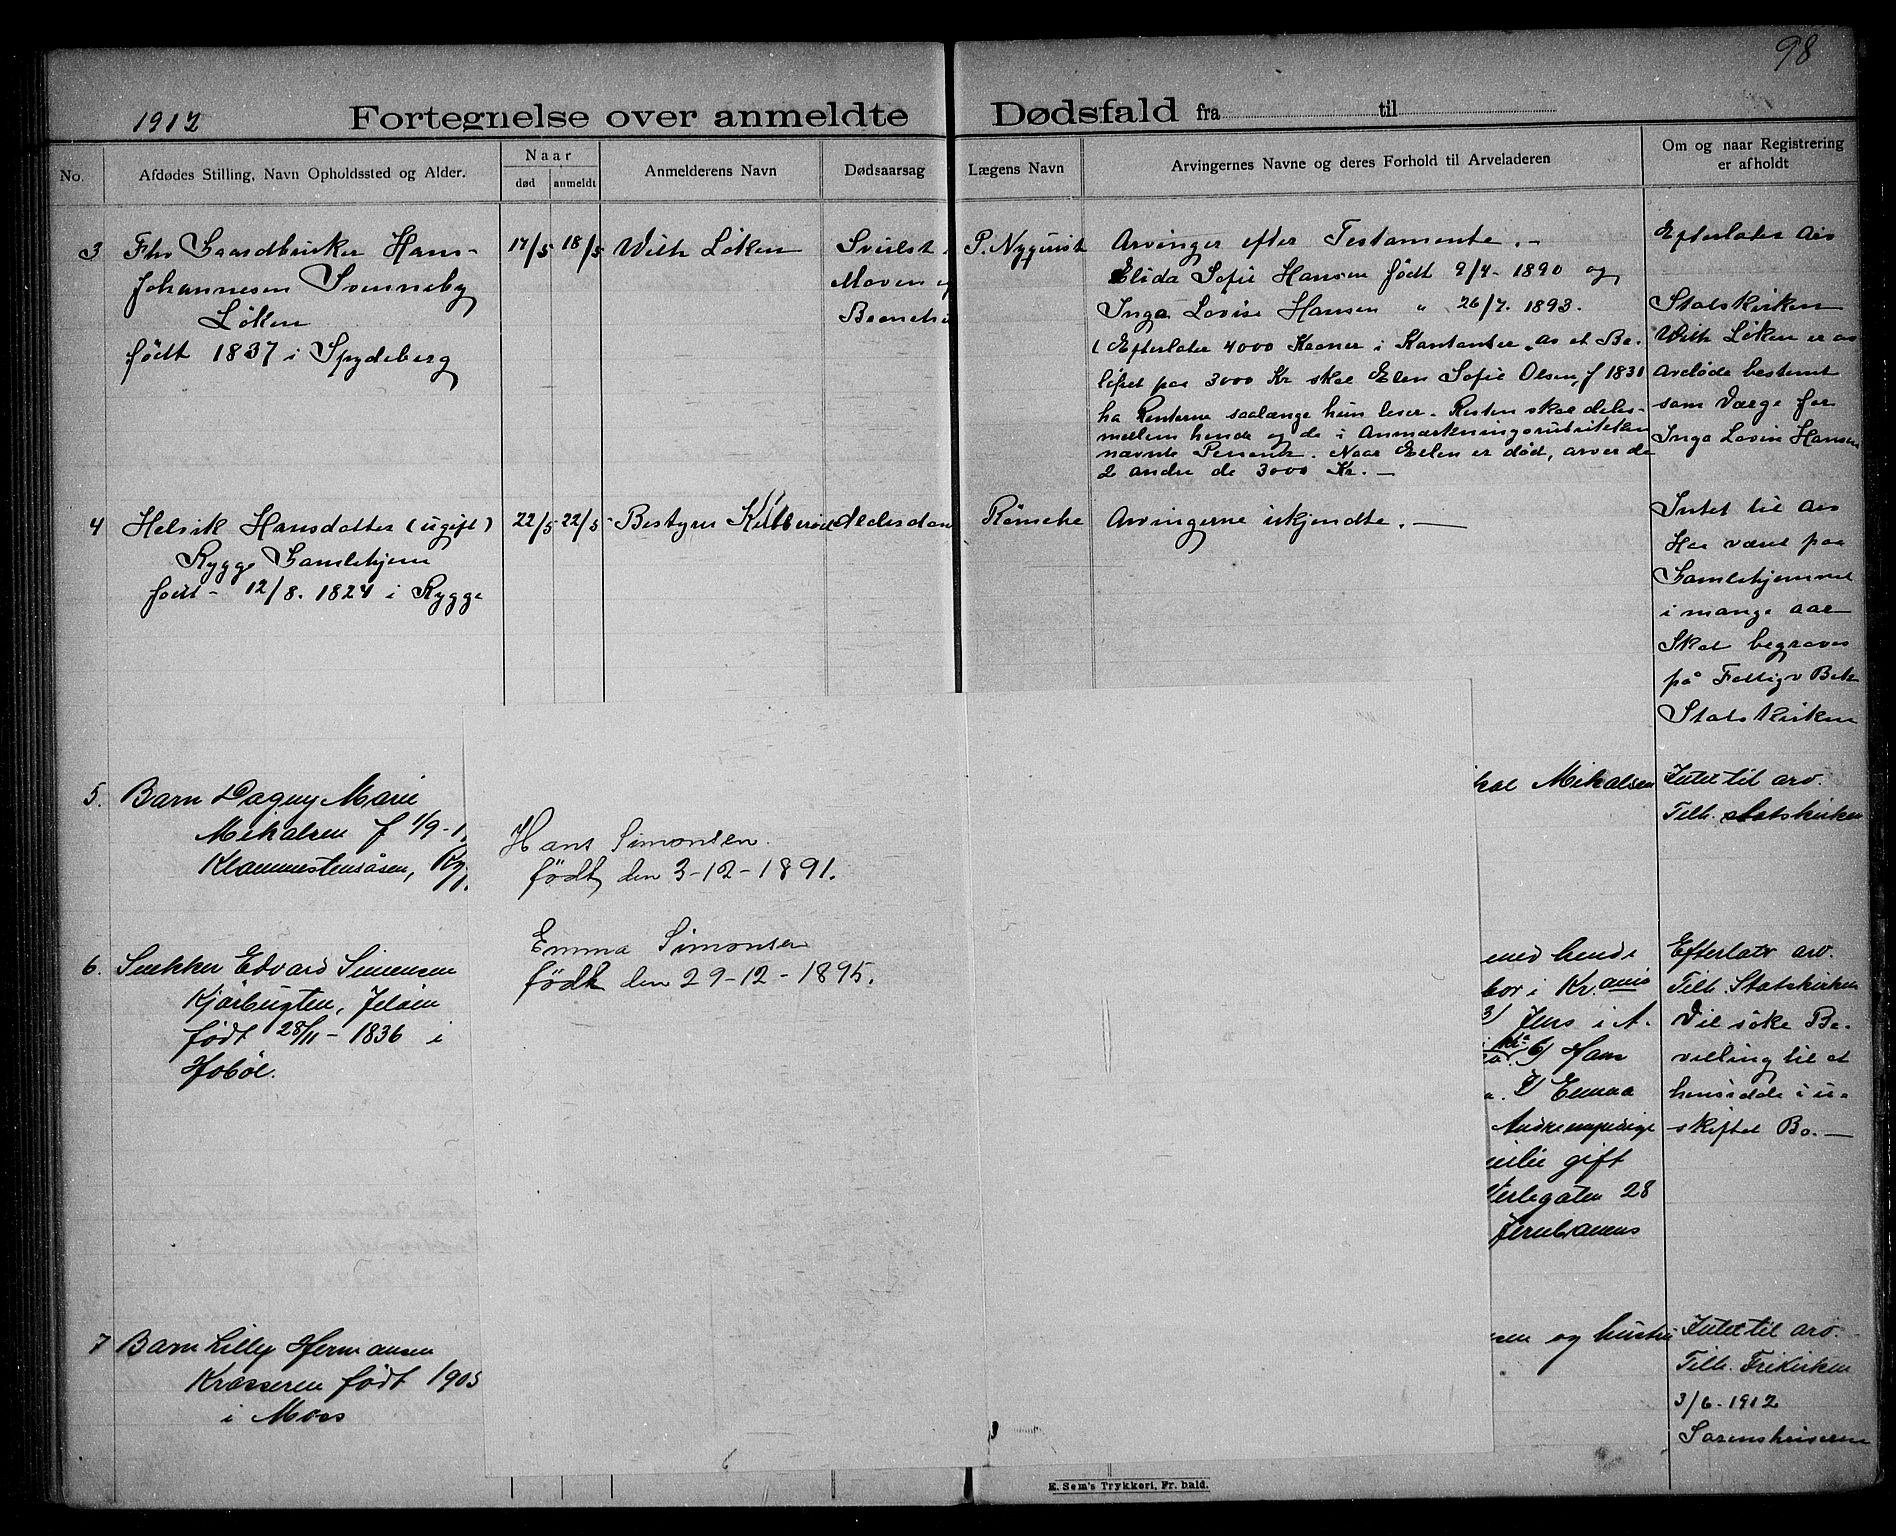 98
1912 Fortegnelse over anmeldte Dødsfald fra til
No.
Afdødes Stilling, Navn Opholdssted og Alder.
Naar
død
anmeldt
Anmelderens Navn
Dødsaarsag
Lægens Navn
Arvingernes Navne og deres Forhold til Arveladeren
Om og naar Registrering
er afholdt
3 Fhv Gaardbruker Hans
Johannesen Svenneby
Løken
født 1837 i Spydeberg
17/5 18/5 Wilh Løken
Svulst i
Maven og
P. Nyquist
Arvinger efter Testamente. -
Elida Sofie Hansen født 9/4 - 1890 og
Inga Lovise Hansen " 26/7. 1893.
( Efterlater 4000 Kroner i Kontanter, av et Be-
løpet paa 3000 Kr skal Elen Sofie Olsen, f 1831
ha Renterne saalænge hun lever. Resten skal deles
mellem hende og de i Anmærkningsrubrikken
nævnte Personer. Naar Elen er død, arver de
2 andre de 3000 Kr. -
Efterlater Arv
Statskirken
Wilh Løken er av
avdøde bestemt
som Værge for
Inga Lovise Hansen
4 Helvik Hansdatter (ugift)
Rygge Gamlehjem
født - 12/8. 1824 i Rygge
22/5 22/5 Bestyrer Kulterød Alderdom
Rømcke
Arvingerne ukjendte. -
Intet til Arv
Har været paa
Gamlehjemmet
i mange aar
Skal begraves
på Fattigv Bek
Statskirken
5. Barn Dagny Marie
Mikalsen f 1/9 - 1
Klammestensåsen, Ryg
kal Mikalsen
Intet til arv.
Tilh. statskirken
Hans Simonsen.
født den 3-12-1891.
Emma Simonsen
født den 29-12-1895.
6. Snekker Edvard Simensen
Kjærbugten, Jeløen
født 28/11 - 1836 i
Hobøl.
med hende
bor i Kr.ania
3) Jens i A.
6) Hans
7) Emma
gift
28
Jernbanens
Efterlater arv.
Tilh. Statskirken
Vil söke Be-
villing til at
hensidde i u-
skiftet Bo. -
7 Barn Lilly Hermansen
Krosseren født 1905
i Moss
sen og hustru
Intet til arv.
Tilh. Frikirken
3/6 - 1912
Sorenskriveren
6
E. Sem's Trykkeri, Fr. hald.